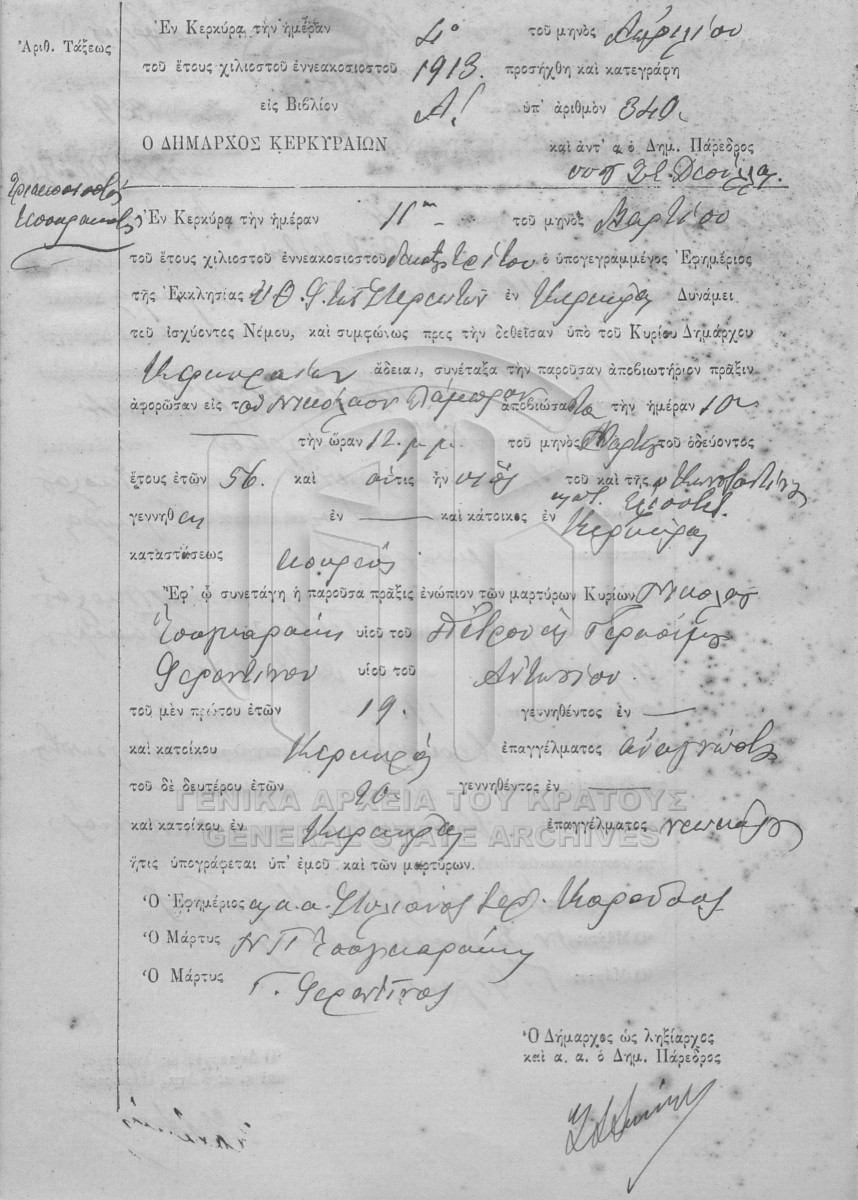 Ἀριθ. Τάξεως
Ἐν Κερκύρᾳ τὴν ἡμέραν 4ῃ τοῦ μηνὸς Ἀπριλίου
τοῦ ἔτους χιλιοστοῦ ἐννεακοσιοστοῦ 1913. προσήχθη καὶ κατεγράφη
εἰς Βιβλίον Α! ὑπ' ἀριθμὸν 340.
Ο ΔΗΜΑΡΧΟΣ ΚΕΡΚΥΡΑΙΩΝ καὶ ἀντ' α. ὁ Δημ. Πάρεδρος
Ἐν Κερκύρᾳ τὴν ἡμέραν 11ην τοῦ μηνὸς Μαρτίου
τοῦ ἔτους χιλιοστοῦ ἐννεακοσιοστοῦ δεκάτου τρίτου ὁ ὑπογεγραμμένος Ἐφημέριος
τῆς Ἐκκλησίας ἐν Κερκύρᾳ Δυνάμει
τοῦ ἰσχύοντος Νόμου, καὶ συμφώνως πρὸς τὴν δοθεῖσαν ὑπὸ τοῦ Κυρίου Δημάρχου
Κερκυραίων ἄδειαν, συνέταξα τὴν παροῦσαν ἀποβιωτήριον πρᾶξιν
ἀφορῶσαν εἰς τὸν Νικόλαον ἀποβιώσαντα τὴν ἡμέραν 10ην
τὴν ὥραν 12 μ.μ. τοῦ μηνὸς Μαρτίου τοῦ ὁδεύοντος
ἔτους ἐτῶν 56. καὶ οὗτις ἦν υἱὸς τοῦ καὶ τῆς π. Κωνσταντίνου
γεννηθεὶς ἐν — καὶ κάτοικος ἐν Κερκύρᾳ
καταστάσεως κουρεὺς
Ἐφ' ᾧ συνετάγη ἡ παροῦσα πρᾶξις ἐνώπιον τῶν μαρτύρων Κυρίων Νικολάου
Τσαγκαράκη υἱοῦ τοῦ Πέτρου καὶ Γερασίμου
Φεραντίνου υἱοῦ τοῦ Ἀντωνίου.
τοῦ μὲν πρώτου ἐτῶν 19. γεννηθέντος ἐν —
καὶ κατοίκου Κερκύρᾳ ἐπαγγέλματος ἀναγνώστου
τοῦ δὲ δευτέρου ἐτῶν 20. γεννηθέντος ἐν —
ΓΕΝΙΚΑ ΑΡΧΕΙΑ ΤΟΥ ΚΡΑΤΟΥΣ
καὶ κατοίκου ἐν Κερκύρᾳ ἐπαγγέλματος νεωκόρου
GENERAL STATE ARCHIVES
ἥτις ὑπογράφεται ὑπ' ἐμοῦ καὶ τῶν μαρτύρων.
Ὁ Ἐφημέριος Στυλιανὸς Ἱερ.
Ὁ Μάρτυς Ν Π Τσαγκαράκης
Ὁ Μάρτυς Γ. Φεραντίνος
Ὁ Δήμαρχος ὡς ληξίαρχος
καὶ α. α. ὁ Δημ. Πάρεδρος